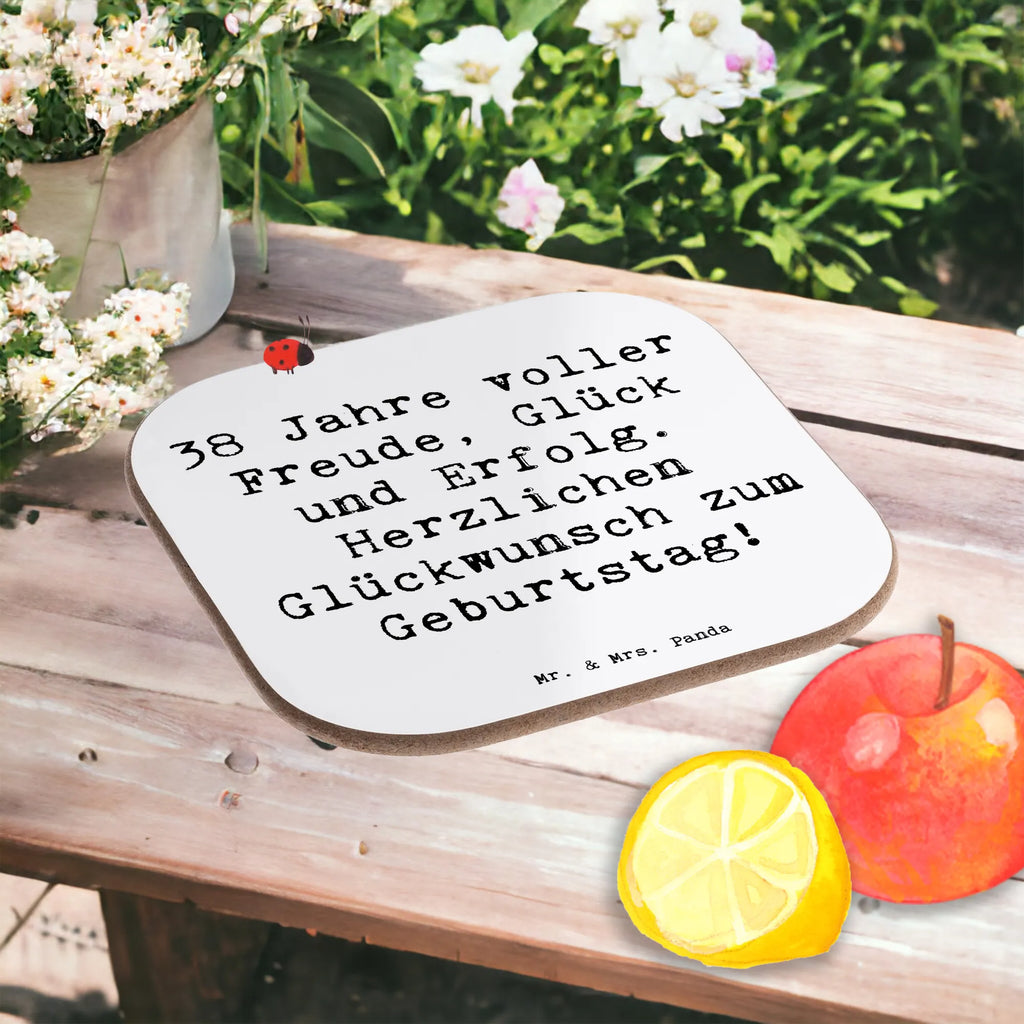 38 Jahre voller
Freude, Glück
und Erfolg.
Herzlichen
Glückwunsch zum
Geburtstag!
Mr. & Mrs. Panda